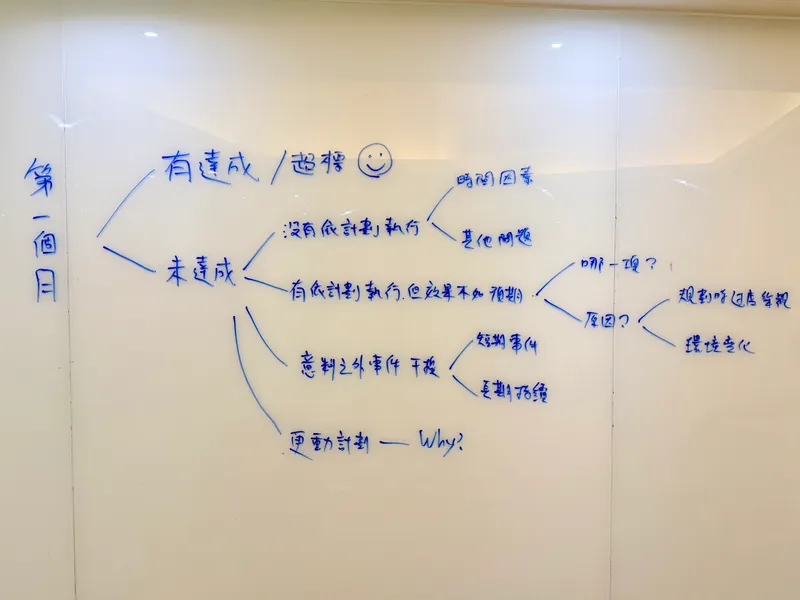 第一個月
有達成 / 超標
未達成
沒有依計劃執行
時間因素
其他問題
有依計劃執行.但效果不如預期
哪一項?
原因?
規劃時過度
環境變化
意料之外事件干擾
短期事件
長期持續
更動計劃 — Why?